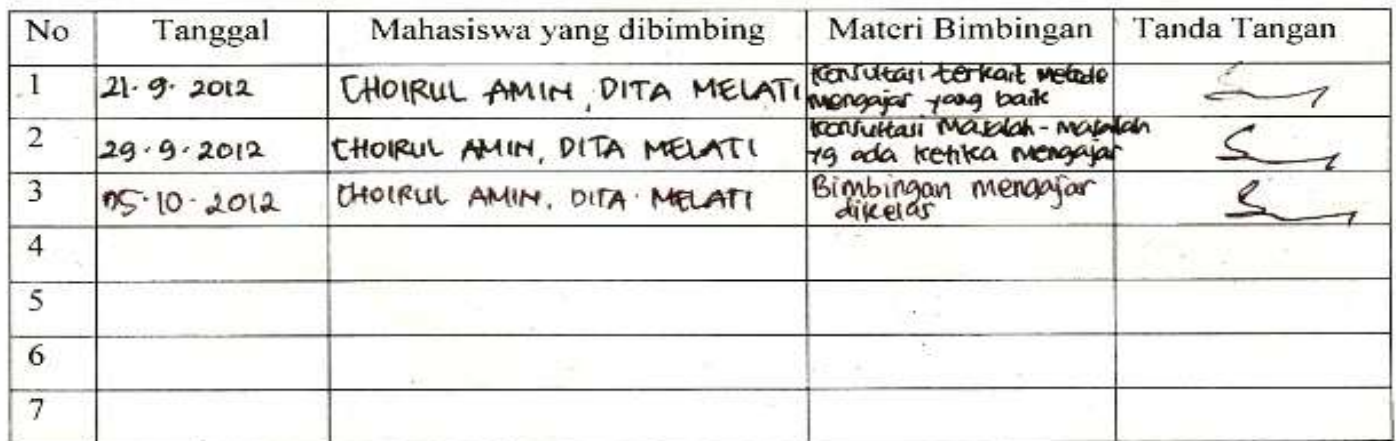 No Tanggal Mahasiswa yang dibimbing Materi Bimbingan Tanda Tangan
1 21.9.2012 CHOIRUL AMIN, DITA MELATI Konsultasi terkait metode
mengajar yang baik
2 29.9.2012 CHOIRUL AMIN, DITA MELATI Konsultasi Masalah-masalah
yg ada ketika mengajar
3 05.10.2012 CHOIRUL AMIN, DITA MELATI Bimbingan mengajar
dikelas
4
5
6
7